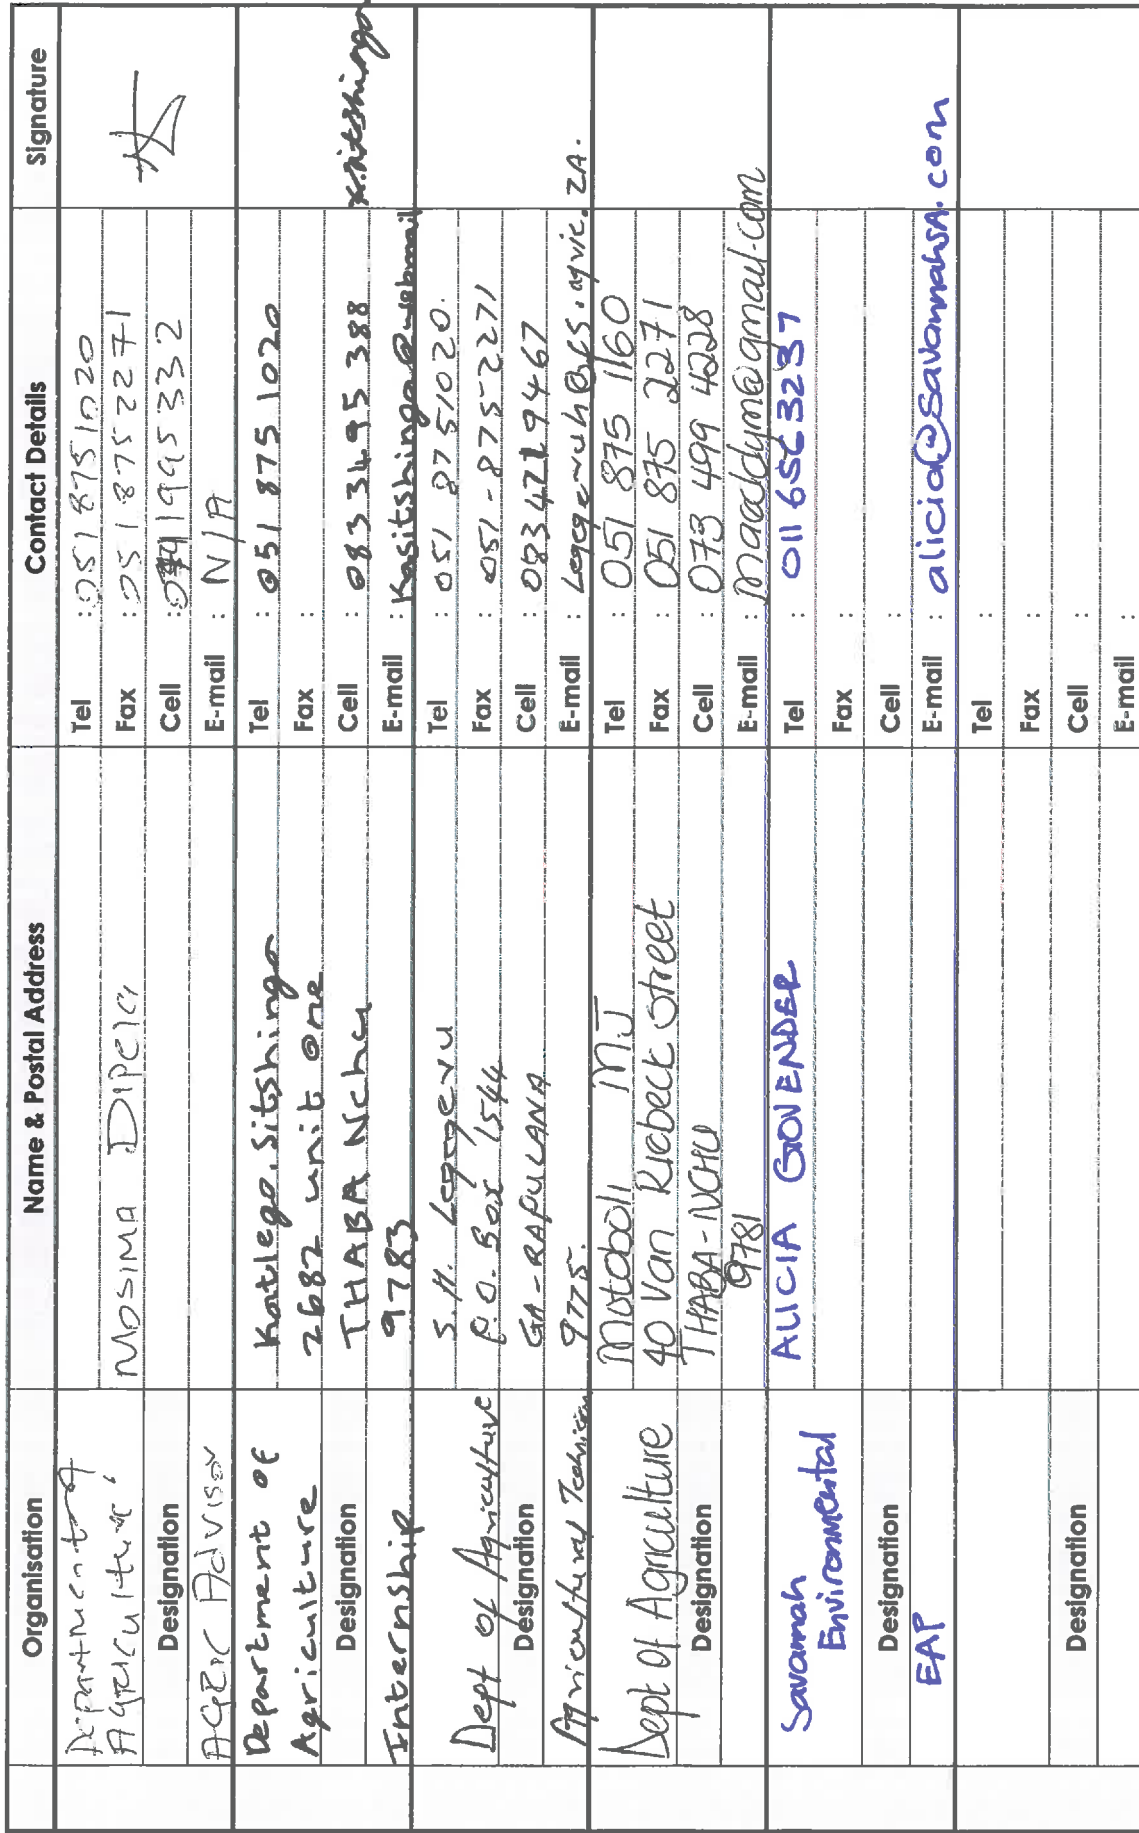 Organisation
Name & Postal Address
Contact Details
Signature
Department of
Agriculture
Designation
AGRIC Advisor
MOSIMA DIPELA
Tel : 051 8751020
Fax : 051 875 2271
Cell : 1995332
E-mail : N/A
Department of
Agriculture
Designation
Internship
Katlego. Sitshingo
2682 unit one
THABA Nchu
9783
Tel : 051 875 1020
Fax :
Cell : 083 3495 388
E-mail : Kositshingo@webmail
K.Sitshingo
Dept of Agriculture
Designation
Agricultural Technician
S.H.
P.O. Box 1544
GA-RAPULANA
9775.
Tel : 051 8751020.
Fax : 051-8752271
Cell : 0834219467
E-mail : .agric.ZA.
Dept of Agriculture
Designation
Motaboli MJ
40 Van Riebeck street
THABA-NCHU
9781
Tel : 051 875 1160
Fax : 051 875 2271
Cell : 073 499 4228
E-mail : maddym@gmail.com
Savannah
Environmental
Designation
EAP
ALICIA GOVENDER
Tel : 011 656 3237
Fax :
Cell :
E-mail : alicia@savannahSA.com
Designation
Tel :
Fax :
Cell :
E-mail :